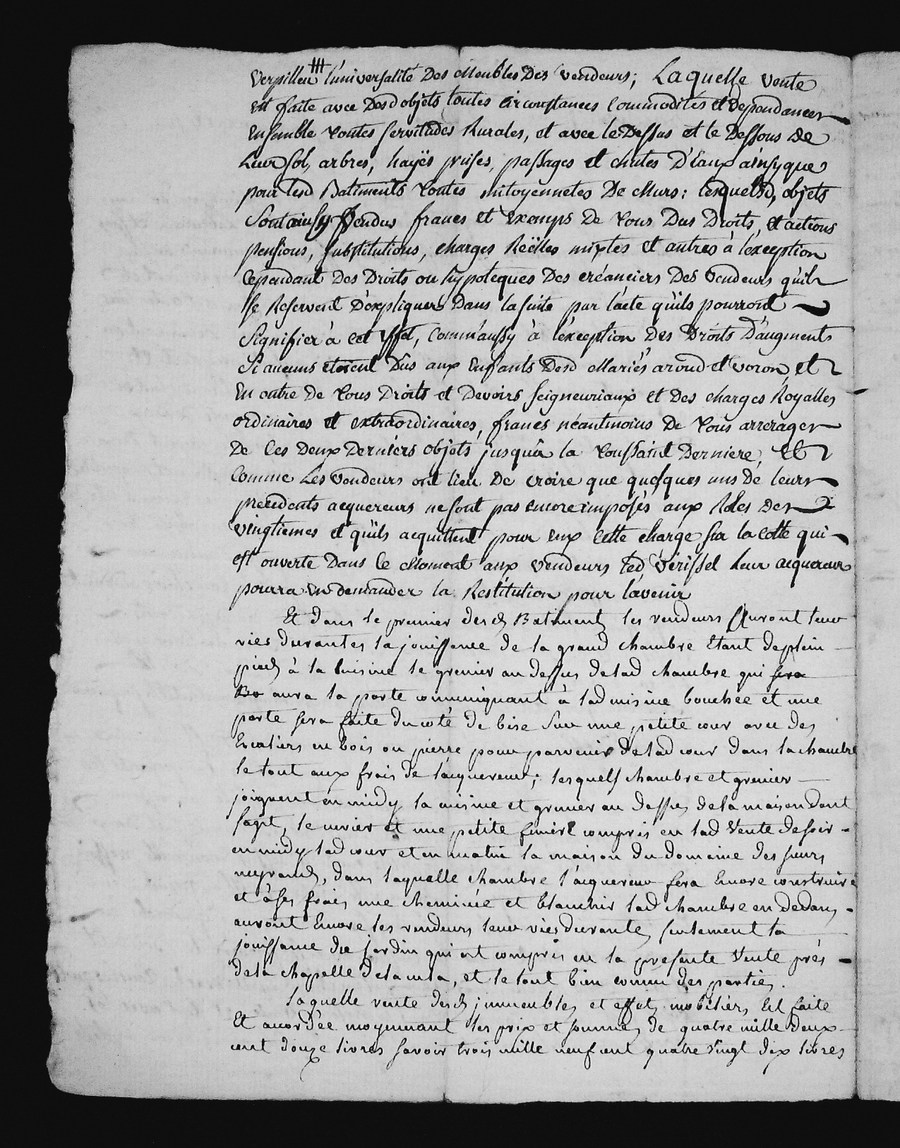 Verpilleu l'universalité Des Meubles Des Vendeurs; Laquelle Vente
Est faite avec Desd objets toutes circonstances Commodités et dependances
Ensemble toutes servitudes Rurales, et avec le Dessus et le Dessous De
Leur sol, arbres, hayës prises, passages et chutes D'Eaux ainsy que
pour lesd Batiments toutes mitoyennetes De Murs: lesquelsd objets
Sont ainsy Vendus francs et Exemps De tous Dus Droits, et actions
pensions, substitutions, charges Reëlles mixtes et autres à lexception
Cependant Des Droits ou hypoteques Des créanciers Des Vendeurs quils
se Reservent D'expliquer Dans la suite par l'acte quils pourront
Signifier à cet Effet, comm'aussy à l'exception Des Droits D'augments
Si aucuns etoient Dus aux Enfants Desd Mariés aroud et Voron et
En outre De tous Droits et Devoirs seigneuriaux et Des charges Royalles
ordinaires et extraordinaires, francs néantmoins De tous arrerages
De ces Deux Derniérs objets jusquà la toussaint Derniere, Et
Comme Les Vendeurs ont lieu De croire que quelques uns De leurs
precedents acquereurs ne sont pas encore imposés aux Roles Des
Vingtiemes et quils acquittent pour eux Cette charge sur la Cotte qui
est ouverte Dans ce Moment aux Vendeurs led Vérissel Leur acquereur
pourra En demander la Restitution pour l'avenir
Et dans le premier desd Batiments les vendeurs auront leur
vies durantes la jouissance de la grand chambre Etant de plein
pied à la Cuisine le grenier au dessus de lad chambre qui sera
aura la porte communiquant à lad cuisine bouchée et une
porte sera faite du coté de bise sur une petite cour avec des
Escaliers en bois ou pierre pour parvenir de lad cour dans la chambre
le tout aux frais de lacquereur; lesquels chambre et grenier
joignent en midy la cuisine et grenier au dessus de la maison dont
sagit, le et une petite compris en lad Vente de soir
en midy lad cour et en matin la maison du domaine des sieurs
neyrand, dans laquelle chambre l'acquereur sera Encore construire
et à ses frais une cheminée et blanchir lad chambre en dedans,
auront Encore les vendeurs leur vies durantes seulement la
jouissance du jardin qui est compris en la presente Vente près
de la chapelle de la cula, et le tout bien connu des parties.
Laquelle vente desd immeubles et effets mobiliers Est faite
Et accordée moyennant les prix et sommes de quatre mille deux
cent douze livres savoir trois mille neuf cent quatre vingt dix livres